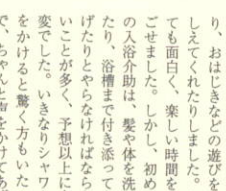 り、おはじきなどの遊びを
しえてくれたりしました。
ても面白く、楽しい時間を
ごせました。しかし、初め
の入浴介助は、髪や体を洗
たり、浴槽まで付き添って
げたりとやらなければなら
いことが多く、予想以上に
変でした。いきなりシャワ
をかけると驚く方もいた
で、ちゃんと声をかけてあ